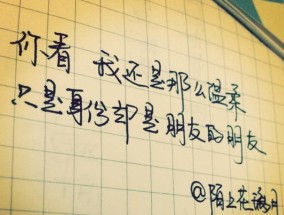 你看 我还是那么温柔
只是身份却是朋友的朋友
@陌上花满月